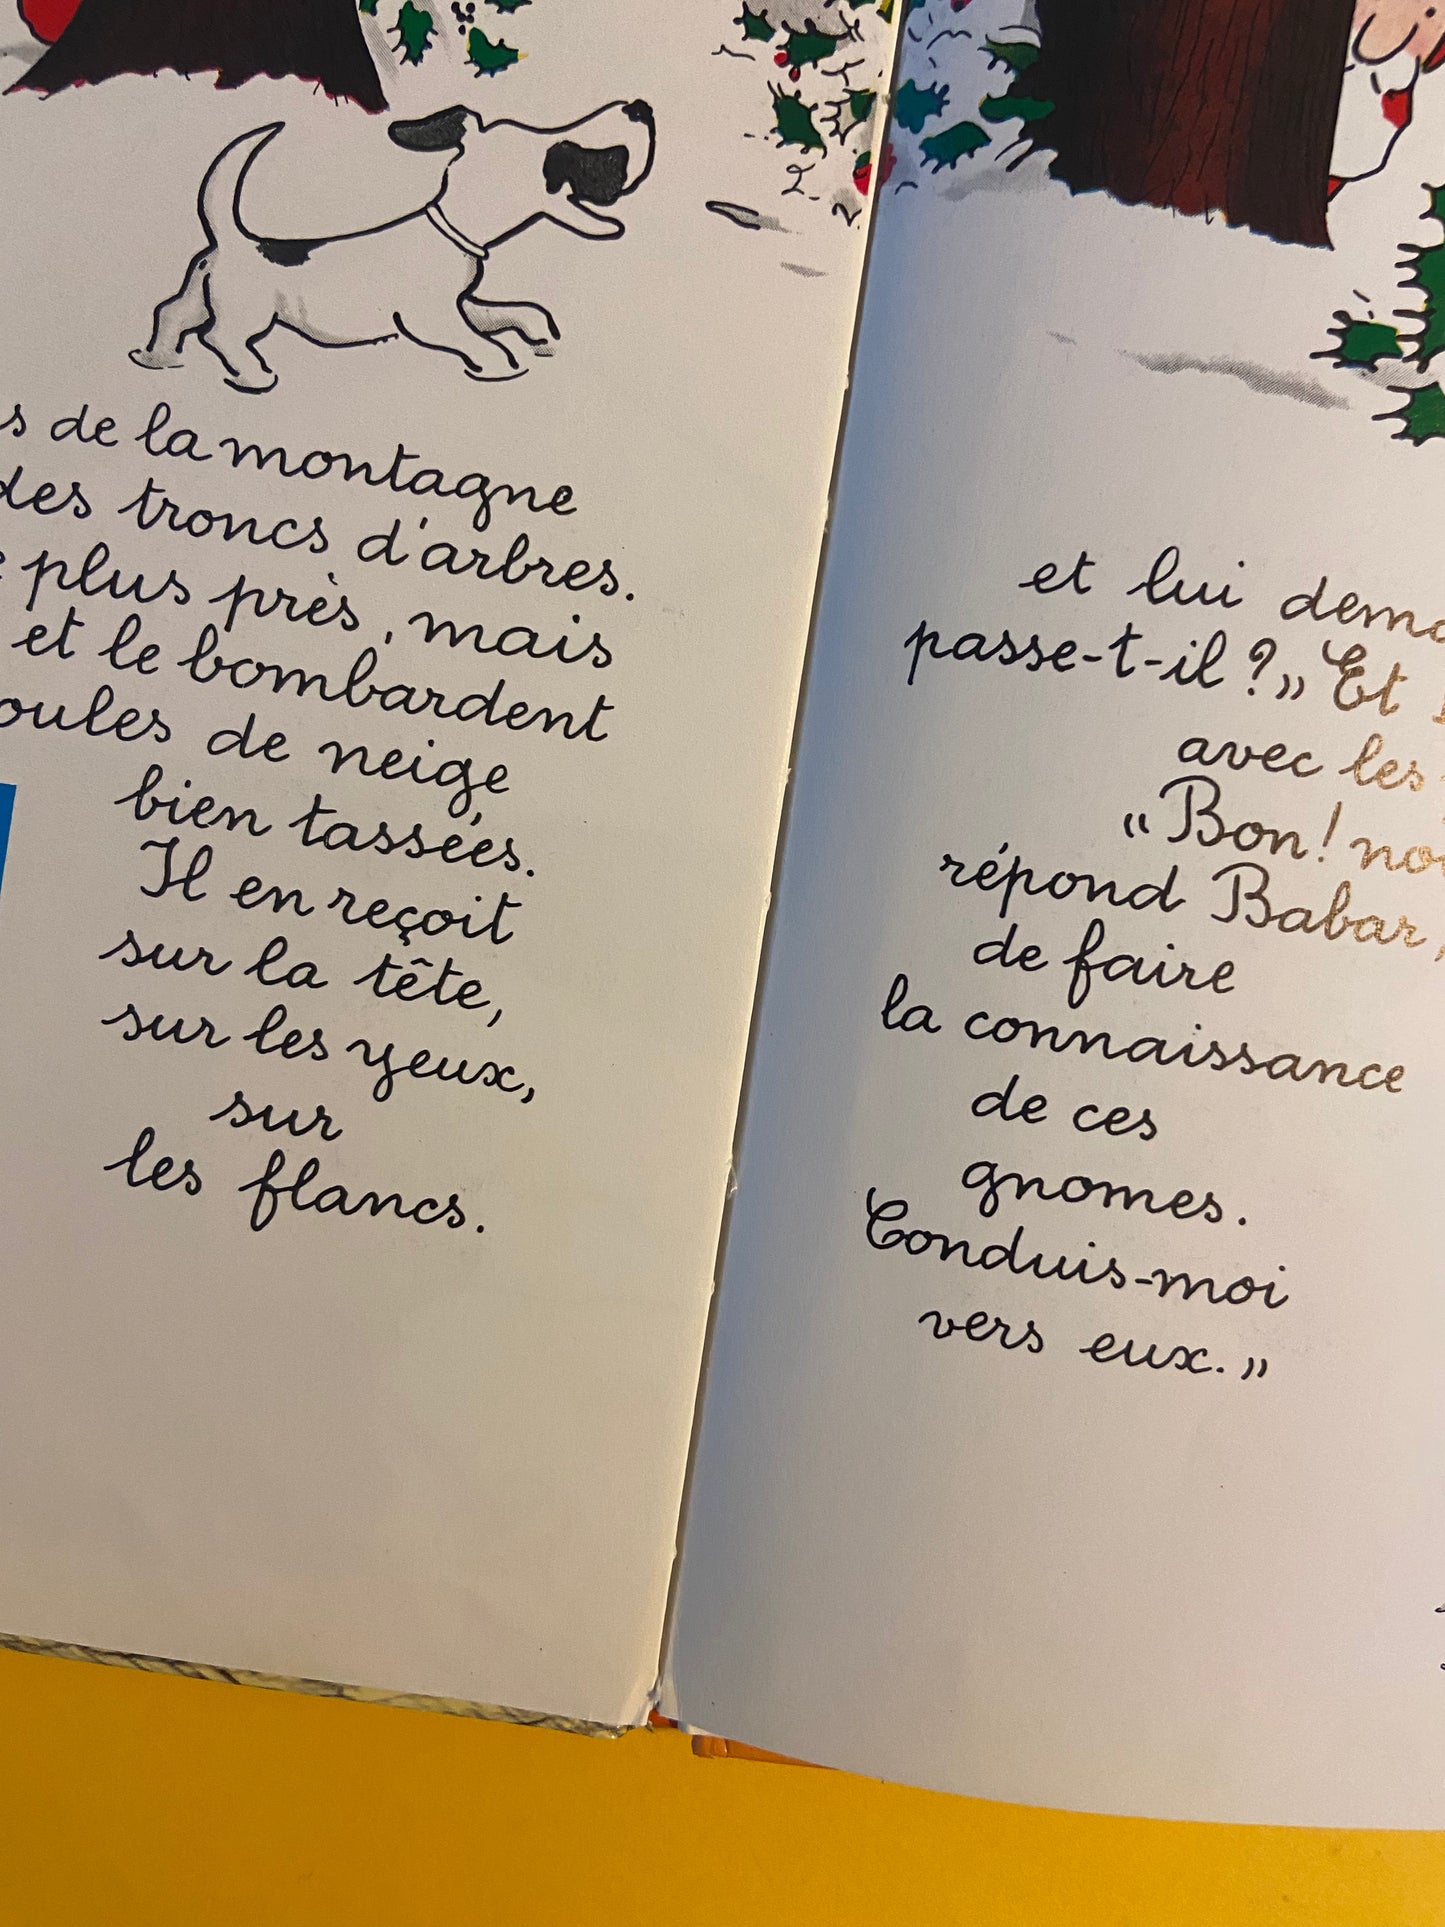 de la montagne
des troncs d'arbres.
plus près, mais
et le bombardent
de neige
bien tassées.
Il en reçoit
sur la tête,
sur les yeux,
sur
les flancs.
et lui
passe-t-il?» Et
avec les
«Bon!
répond Babar,
de faire
la connaissance
de ces
gnomes.
Conduis-moi
vers eux.»